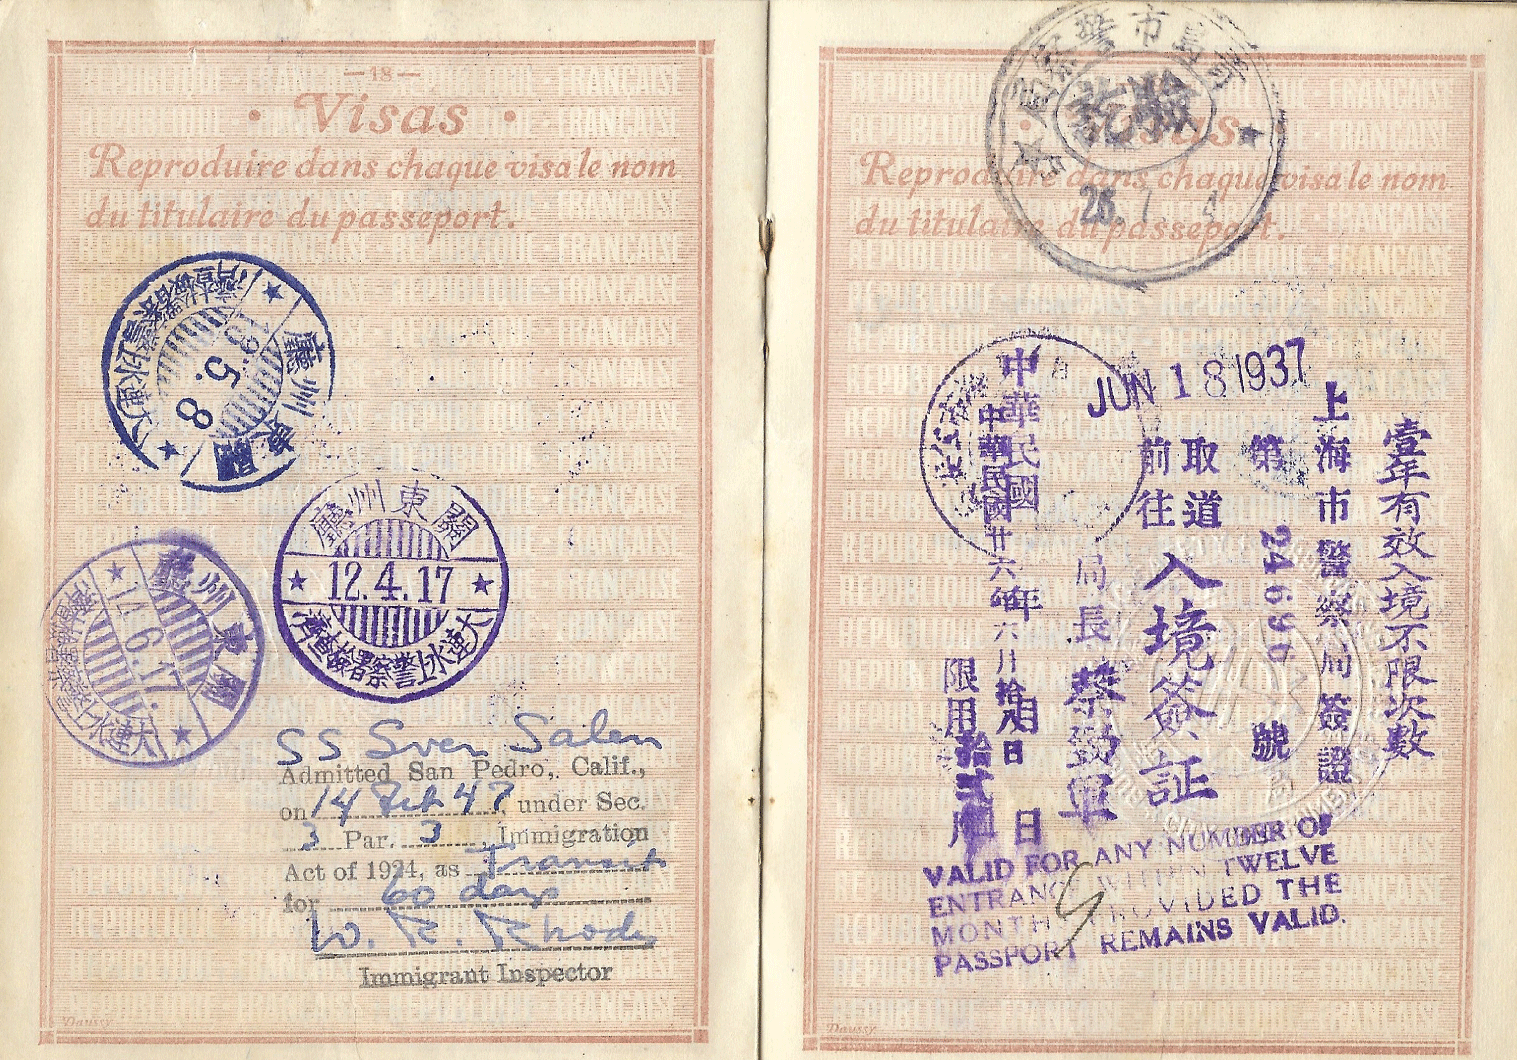 —18—
· Visas ·
Reproduire dans chaque visa le nom
du titulaire du passeport.
關東州廳
19.5.8
關東州廳
12.4.17
大連水上警察署檢查濟
關東州廳
12.6.17.
大連水上警察署檢查濟
SS Sven Salen
Admitted San Pedro, Calif.,
on 14 Feb 47, under Sec.
3 Par. 3 Immigration
Act of 1924, as Transit
for 60 days
W. R. Rhodes
Immigrant Inspector
Daussy
青島市警察局
驗訖
26.
Visas
Reproduire dans chaque visa le nom
du titulaire du passeport.
JUN 18 1937
壹年有效入境不限次數
上海市警察局簽證
第 24696 號
取道
前往
入境簽証
局長蔡勁軍
中華民國 年 月 日
中華民國廿六年六月拾八日
限用拾貳月
VALID FOR ANY NUMBER OF
ENTRANCE WITHIN TWELVE
MONTHS PROVIDED THE
PASSPORT REMAINS VALID.
Daussy